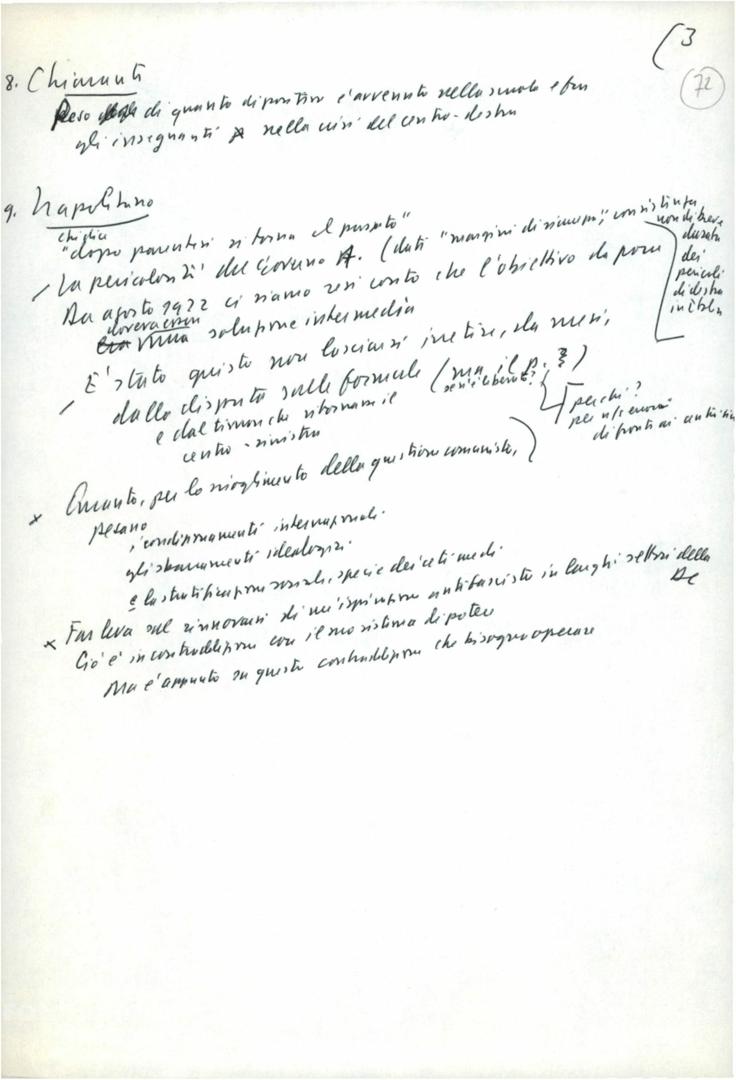 (3
72
8. Chiarante
Peso di quanto di positivo è avvenuto nella scuola e fra
gli insegnanti nella crisi del centro-destra
9. Napolitano
"dopo parentesi si torna al passato"
/ La pericolosità del Governo A. (dati "margini di sicurezza", consistenza
non di breve
durata
dei
pericoli
di destra
in Italia
Da agosto 1972 ci siamo resi conto che l'obiettivo da porre
doveva essere
una soluzione intermedia
/ E' stato questo non lasciarsi irretire, da mesi,
dalla disputa sulle formule (ma il P.
e dal timore che ritornasse il
centro-sinistra
perché?
di fronte ai
x Quanto, per lo scioglimento della questione comunista,
pesano
i condizionamenti internazionali
gli sbarramenti ideologici
e la stratificazione sociale, specie dei ceti medi
x Far leva sul rinnovarsi di un'ispirazione antifascista in larghi settori della
DC
Ciò è in contraddizione con il suo sistema di potere
Ma è appunto su questa contraddizione che bisogna operare